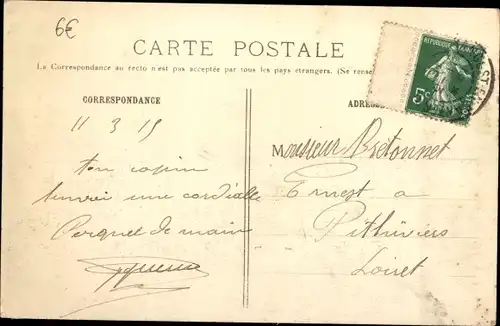 6€
CARTE POSTALE
La Correspondance au recto n'est pas acceptée par tous les pays étrangers. (Se rense
CORRESPONDANCE
ADRES
REPUBLIQUE FRANÇAISE
5c
11 3 15
ton copin
une cordialle
de main
Monsieur Bretonnet
Ernest a
Pithiviers
Loiret